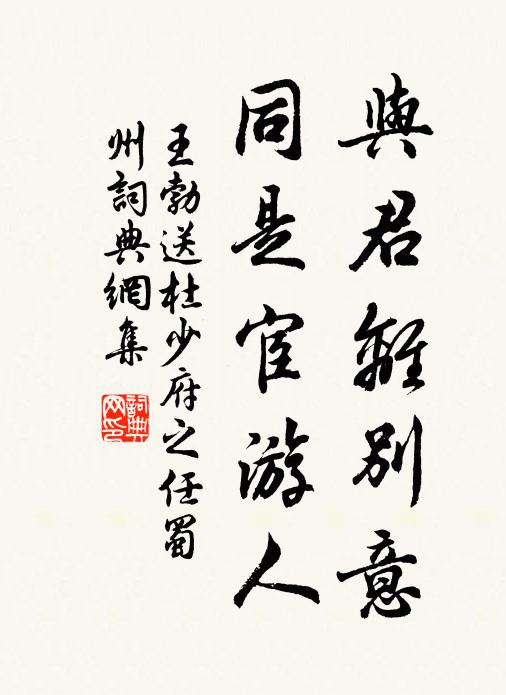 與君離別意
同是宦游人
王勃送杜少府之任蜀
州詞典網集
詞典
网印